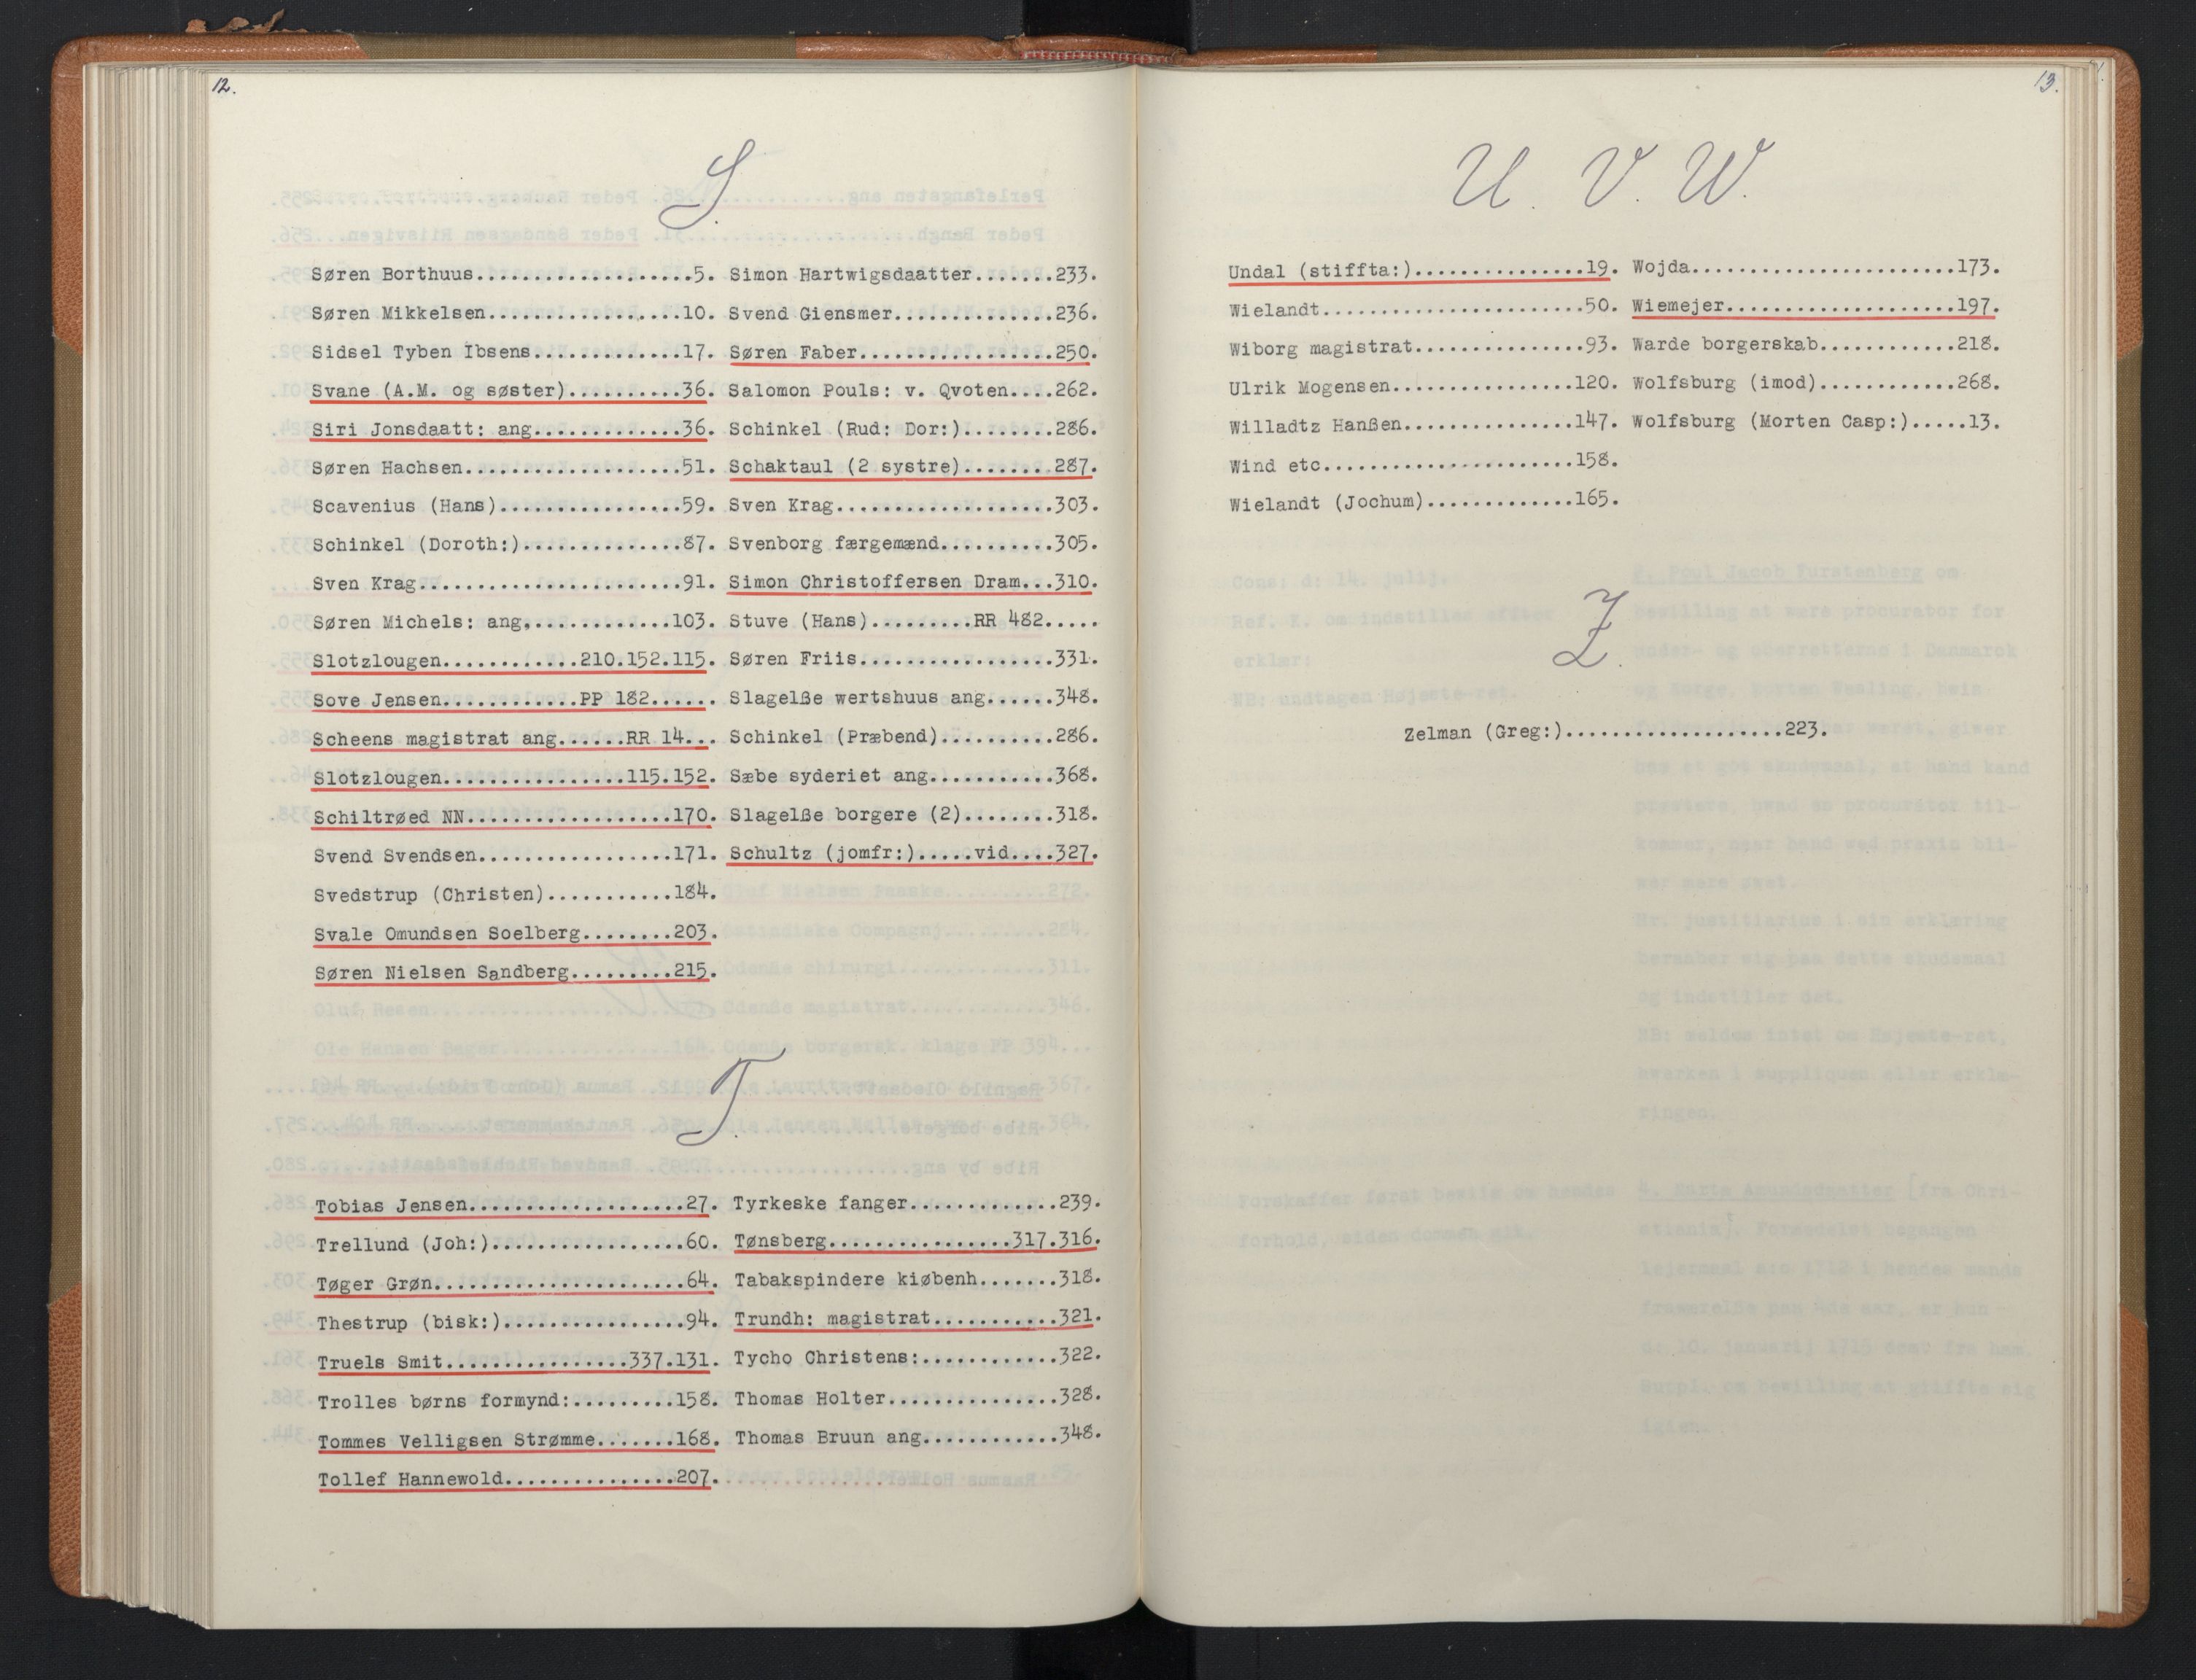 12.
S.
Søren Borthuus...................5.
Søren Mikkelsen.................10.
Sidsel Tyben Ibsens.............17.
Svane (A.M. og søster)..........36.
Siri Jonsdaatt: ang.............36.
Søren Hachsen...................51.
Scavenius (Hans)................59.
Schinkel (Doroth:)..............87.
Sven Krag.......................91.
Søren Michels: ang.............103.
Slotzlougen............210.152.115.
Sove Jensen............PP 182......
Scheens magistrat ang......RR 14...
Slotzlougen................115.152.
Schiltrøed NN..................170.
Svend Svendsen.................171.
Svedstrup (Christen)...........184.
Svale Omundsen Soelberg........203.
Søren Nielsen Sandberg.........215.
Simon Hartwigsdaatter.......233.
Svend Giensmer..............236.
Søren Faber.................250.
Salomon Pouls: v. Qvoten....262.
Schinkel (Rud: Dor:)........286.
Schaktaul (2 systre)........287.
Sven Krag...................303.
Svenborg færgemænd..........305.
Simon Christoffersen Dram...310.
Stuve (Hans).........RR 482.....
Søren Friis.................331.
Slagelße wertshuus ang......348.
Schinkel (Præbend)..........286.
Sæbe syderiet ang...........368.
Slagelße borgere (2)........318.
Schultz (jomfr:).....vid....327.
T.
Tobias Jensen...................27.
Trellund (Joh:).................60.
Tøger Grøn......................64.
Thestrup (bisk:)................94.
Truels Smit................337.131.
Trolles børns formynd:.........158.
Tommes Velligsen Strømme.......168.
Tollef Hannewold...............207.
Tyrkeske fanger.............239.
Tønsberg................317.316.
Tabakspindere kiøbenh.......318.
Trundh: magistrat...........321.
Tycho Christens:............322.
Thomas Holter...............328.
Thomas Bruun ang............348.
13.
U. V. W.
Undal (stiffta:)...............19.
Wielandt.......................50.
Wiborg magistrat...............93.
Ulrik Mogensen................120.
Willadtz Hanßen...............147.
Wind etc......................158.
Wielandt (Jochum).............165.
Wojda.......................173.
Wiemejer....................197.
Warde borgerskab............218.
Wolfsburg (imod)............268.
Wolfsburg (Morten Casp:).....13.
Z.
Zelman (Greg:)...................223.